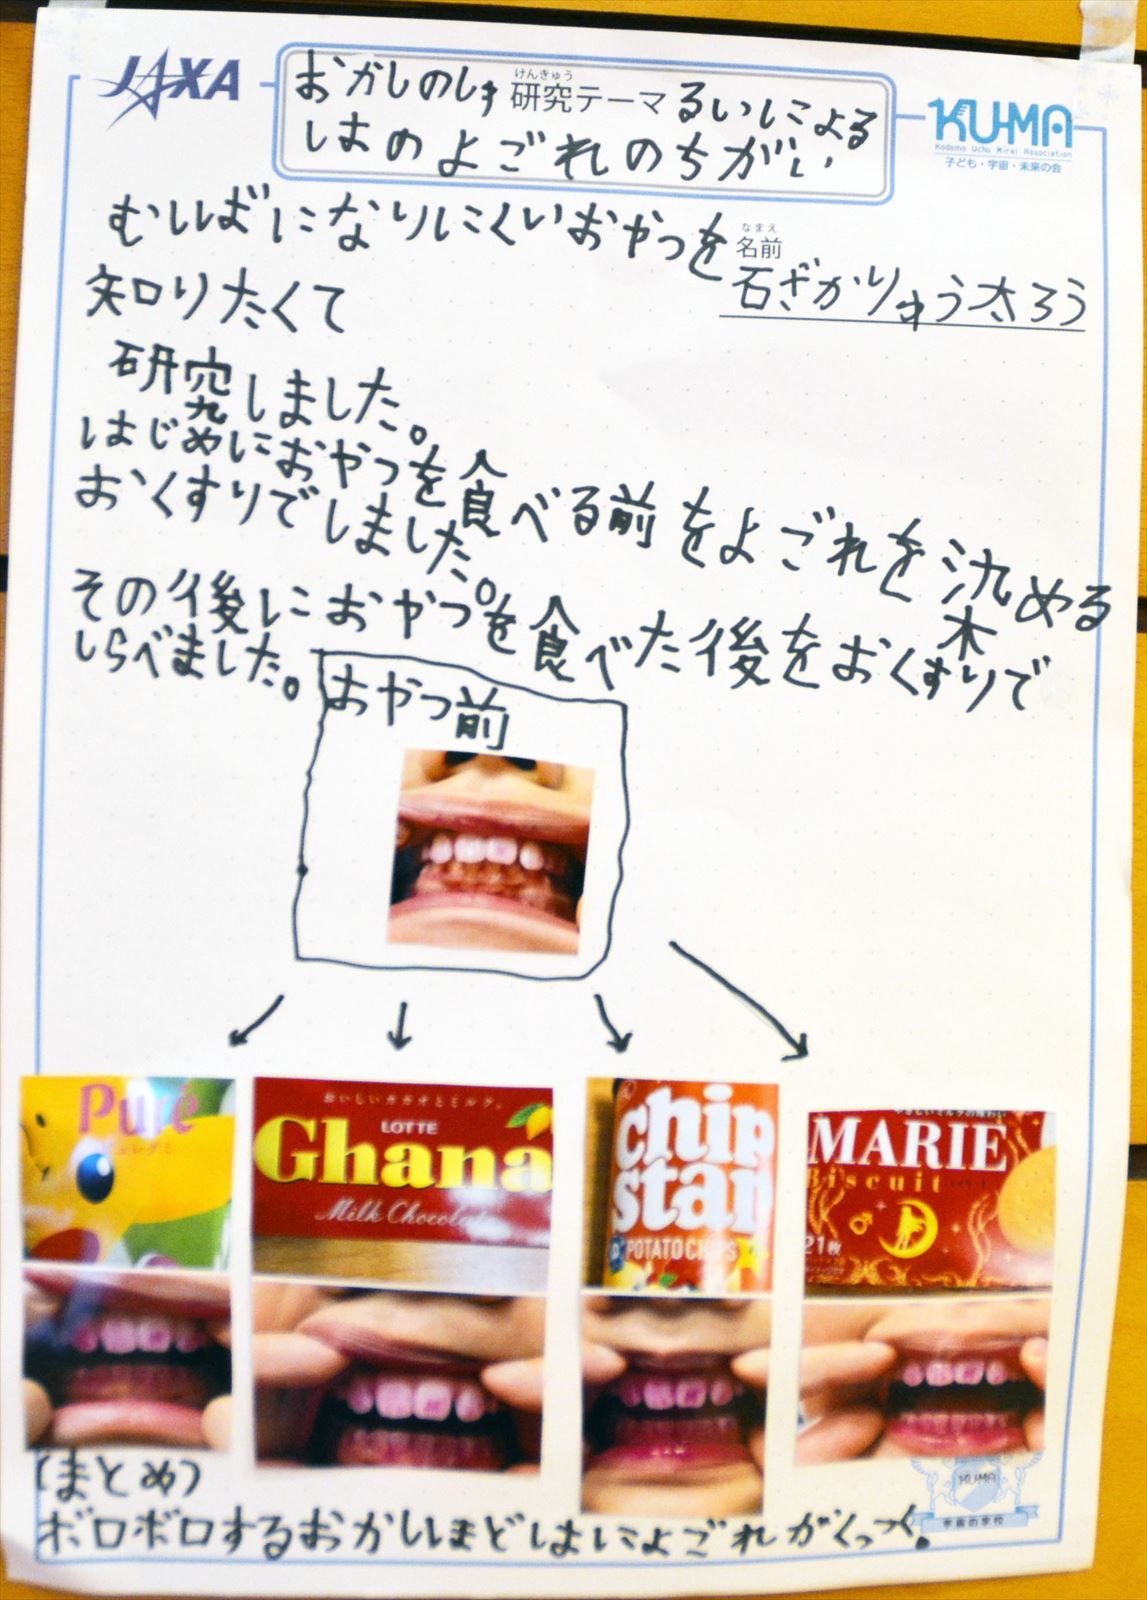 JAXA
おかしのしゅ
けんきゅう
研究テーマ
るいによる
はのよごれのちがい
KU-MA
Kodomo Uchu Mirai Association
子ども・宇宙・未来の会
むしばになりにくいおやつを
なまえ
名前
石ざかりゅう太ろう
知りたくて
研究しました。
はじめにおやつを食べる前をよごれを染める
おくすりでしました。
その後におやつを食べた後をおくすりで
しらべました。
おやつ前
Puré
ピュレグミ
おいしいカカオとミルク。
LOTTE
Ghana
Milk Chocolate
chip
star
POTATO CHIPS
やさしいミルクの味わい
MARIE
Biscuit
21枚
(まとめ)
KUMA
宇宙の学校
ボロボロするおかしほどはによごれがくっつく。